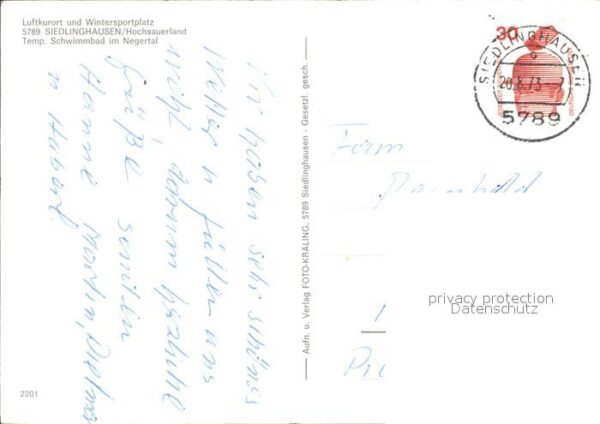 Luftkurort und Wintersportplatz
5789 SIEDLINGHAUSEN/Hochsauerland
Temp. Schwimmbad im Negertal
Wir haben sehr schönes
Wetter u. fühlen uns
wohl, darum herzliche
Grüße senden
Hanne Martin, Dietmar
u Hubert
2201
Aufn. u. Verlag FOTO-KRALING, 5789 Siedlinghausen - Gesetzl. gesch.
30
SIEDLINGHAUSEN
20.8.73
5789
privacy protection
Datenschutz